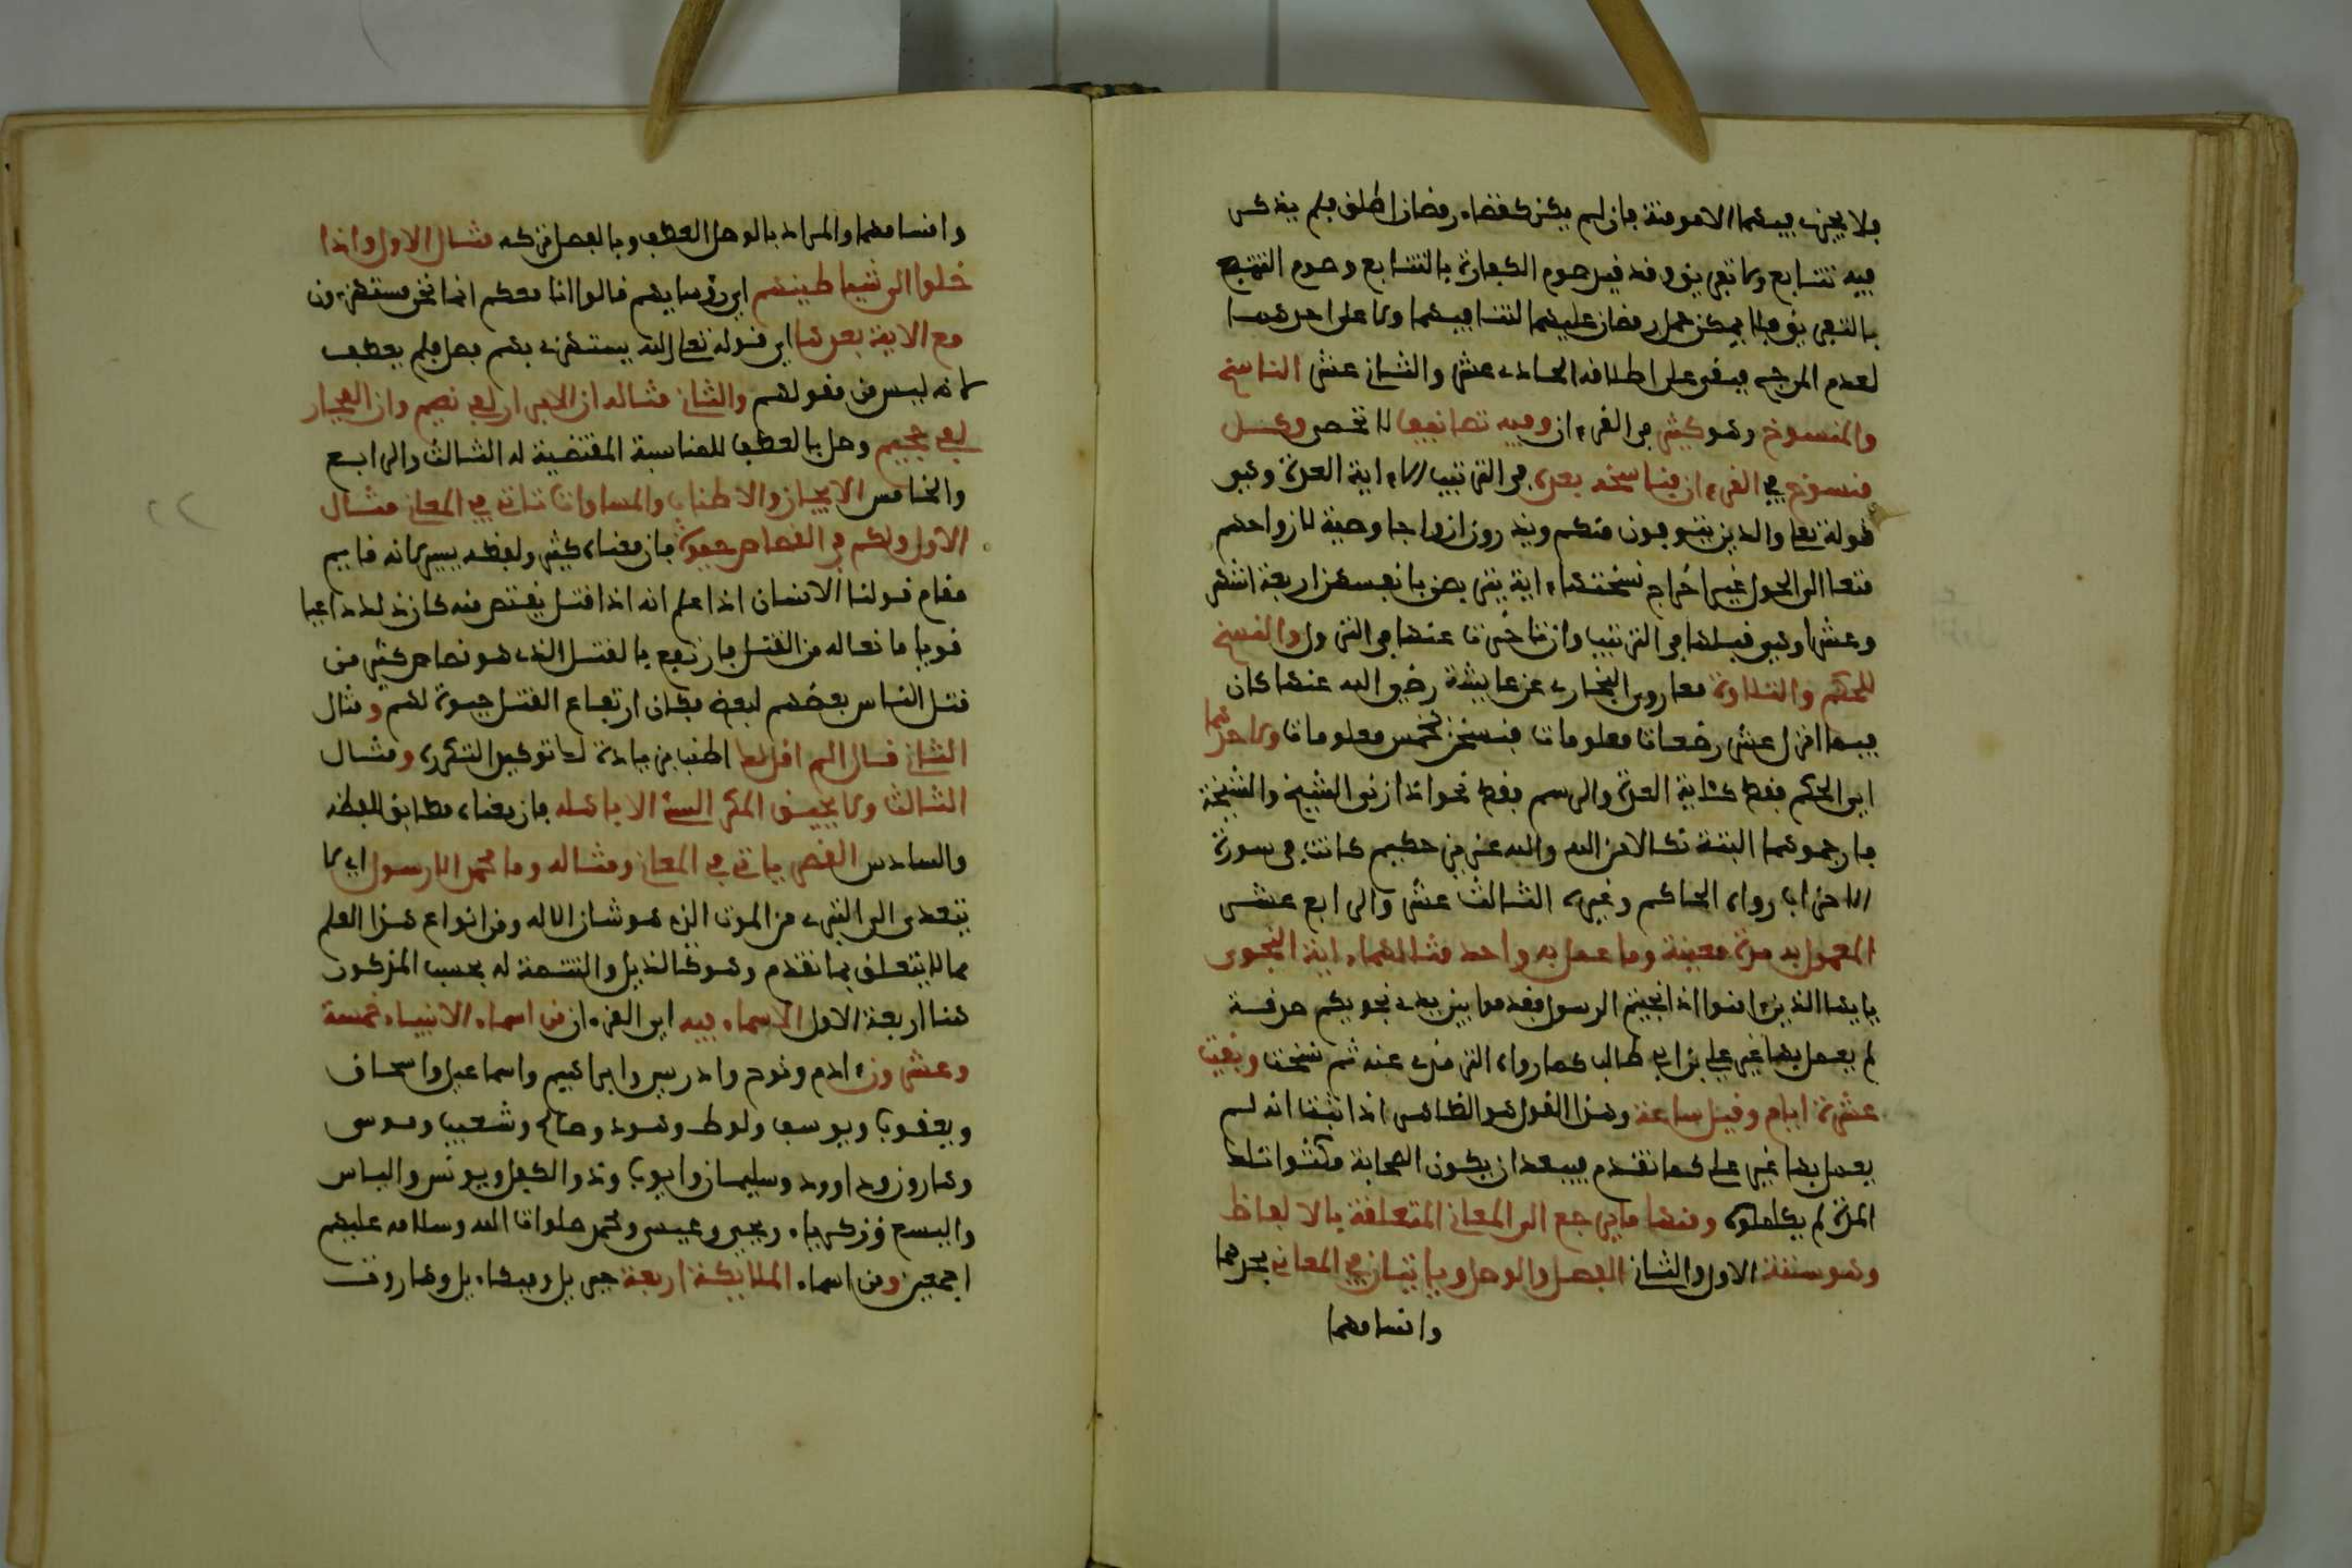 فلا يجزي فيهما الا مومنة فان لم يكن كقضاء رمضان اطلق فلم يذكر
فيه تتابع ولا تفريق وقد قيد صوم الكفارة بالتتابع وصوم التمتع
بالتفريق فلا يمكن حمل رمضان عليهما لتنافيهما ولا على احدهما
لعدم المرجح فيبقى على اطلاقه الحادي عشر والثاني عشر الناسخ
والمنسوخ وهو كثير في القرءان وفيه تصانيف لا تحصى وكل
منسوخ في القرءان فناسخه بعده في الترتيب الا ءاية العدة وهي
قوله تعلى والذين يتوفون منكم ويذرون ازواجا وصية لازواجهم
متاعا الى الحول غير اخراج نسختها ءاية يتربصن بانفسهن اربعة اشهر
وعشرا وهي قبلها في الترتيب وان تاخرت عنها في النزول والنسخ
للحكم والتلاوة معا روى البخاري عن عايشة رضي الله عنها كان
فيما انزل عشر رضعات معلومات فنسخن بخمس معلومات ولاحدهما
اي الحكم فقط كئاية العدة والرسم فقط نحو اذا زنى الشيخ والشيخة
فارجموهما البتة نكالا من الله والله عزيز حكيم كانت في سورة
الاحزاب رواه الحاكم وغيره الثالث عشر والرابع عشر
المعمول به مدة معينة وما عمل به واحد مثالهما ءاية النجوى
يايها الذين ءامنوا اذا نجيتم الرسول فقدموا بين يدي نجويكم صدقة
لم يعمل بها غير علي بن ابي طالب كما رواه الترمذي عنه ثم نسخت وبقيت
عشرة ايام وقيل ساعة وهذا القول هو الظاهر اذا ثبت انه لم
يعمل بها غير علي كما تقدم فيبعد ان يكون الصحابة مكثوا تلك
المدة لم يكلموه ومنها ما يرجع الى المعاني المتعلقة بالالفاظ
وهو ستة الاول والثاني الفصل والوصل وياتيان في المعاني بحدهما
واقسامهما
واقسامهما والمراد بالوصل العطف وبالفصل تركه مثال الاول واذا
خلوا الى شياطينهم اي رؤسايهم قالوا انا معكم انما نحن مستهزءون
مع الاية بعدها اي قوله تعلى الله يستهزئ بهم فصل فلم يعطف
لانه ليس من مقولهم والثاني مثاله ان الابرار لفي نعيم وان الفجار
لفي جحيم وصل بالعطف للمناسبة المقتضية له الثالث والرابع
والخامس الايجاز والاطناب والمساوات تاتي في المعاني مثال
الاول ولكم في القصاص حيوة فان معناه كثير ولفظه يسير لانه قايم
مقام قولنا الانسان اذا علم انه اذا قتل يقتص منه كان ذلك داعيا
قويا مانعا له من القتل فارتفع بالقتل الذي هو قصاص كثير من
قتل الناس بعضهم لبعض فكان ارتفاع القتل حيوة لهم ومثال
الثاني قال الم اقل لك اطنب بزيادة لك توكيد التكرره ومثال
الثالث ولا يحيق المكر السيئ الا باهله فان معناه مطابق للفظه
والسادس القصر ياتي في المعاني ومثاله وما محمد الا رسول اي لا
يتعدى الى التبري من الموت الذي هو شان الاله ومن انواع هذا العلم
مما لا يتعلق بما تقدم وهو كالذيل والتتمة له بحسب المذكور
هنا اربعة الاول الاسماء فيه اي القرءان من اسماء الانبياء خمسة
وعشرون ءادم ونوح وادريس وابراهيم واسماعيل واسحاق
ويعقوب ويوسف ولوط وهود وصالح وشعيب وموسى
وهارون وداوود وسليمان وايوب وذو الكفل ويونس والياس
واليسع وزكرياء ويحيى وعيسى ومحمد صلوات الله وسلامه عليهم
اجمعين ومن اسماء الملايكة اربعة جبريل وميكاءيل وهاروت